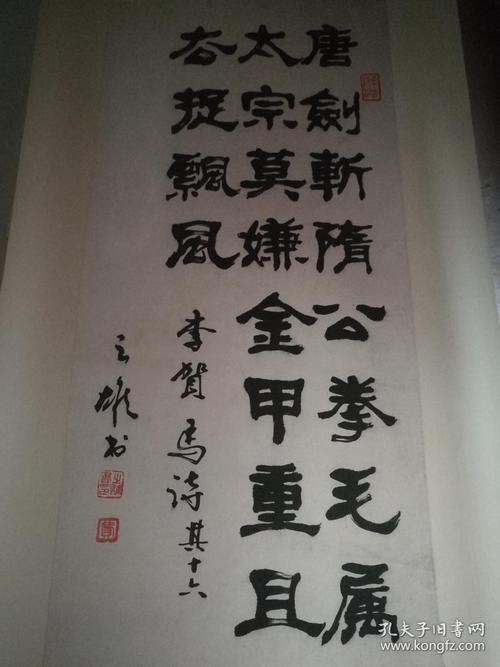 唐劍斬隋公拳毛属
太宗莫嫌金甲重且
去捉飄風
李賀馬詩其十六
雄书
孔夫子旧书网
www.kongfz.com